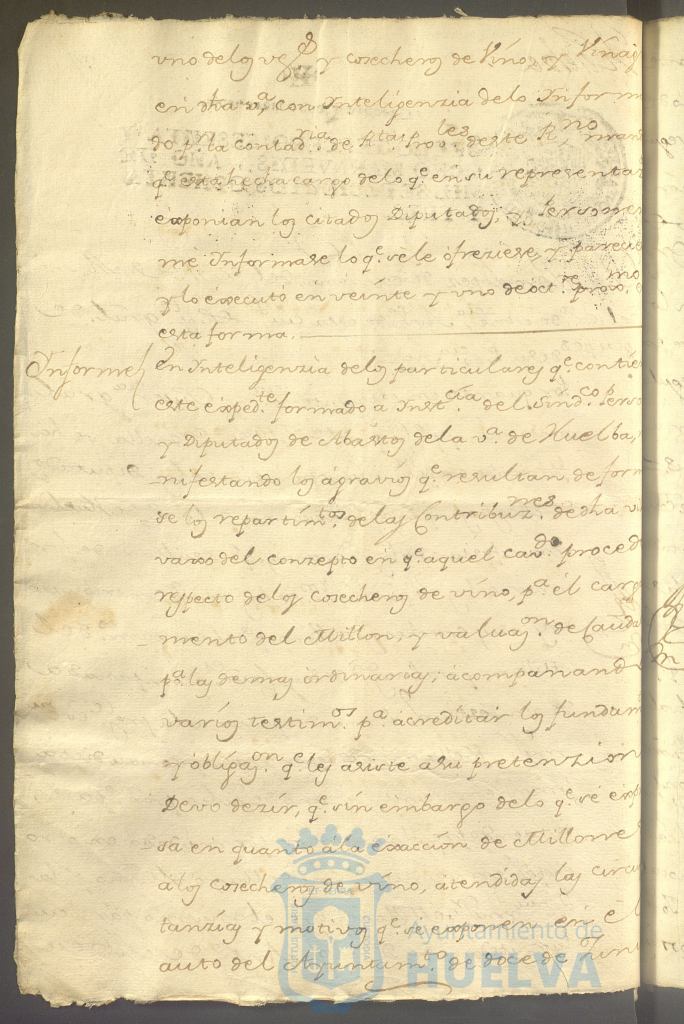 uno delos vez.s y cosecheros de Vino, y Vinag
en dha v.a, con Inteligenzia delo Inform
do p.r la contad.ria de R.tas Prov.les deste R.no man
q.e esta hecha cargo delo q.e en su representa
exponian los citados Diputados, y Personer
me Informase lo q.e sele ofreziese, y parecie
y lo executó en veinte y uno de oct.re prox.mo
esta forma.
Informe
En Inteligenzia delos particulares q.e contie
este exped.te formado á Inst.cia del Sind.co Perso
y Diputados de Abastos dela v.a de Huelba,
nifestando los ágravios q.e resultan de form
se los repartim.tos delas Contribuz.nes de dha vi
vaxo del conzepto en q.e aquel cav.do proced
respecto delos cosecheros de vino, p.a él carg
mento del Millon, y valuaz.on de Cauda
p.a las demas ordinarias; ácompañand
varios testim.os p.a ácreditar los fundam
y óbligaz.on q.e les asiste asu pretenzion
Devo dezir, q.e sin embargo delo q.e se exp
sa en quanto ála éxaccion de Millone
álos cosecheros de vino, átendidas las circu
tanzias y motivos q.e se exponen en el
auto del Ayuntam.to de doce de Jun
Ayuntamiento de
HUELVA